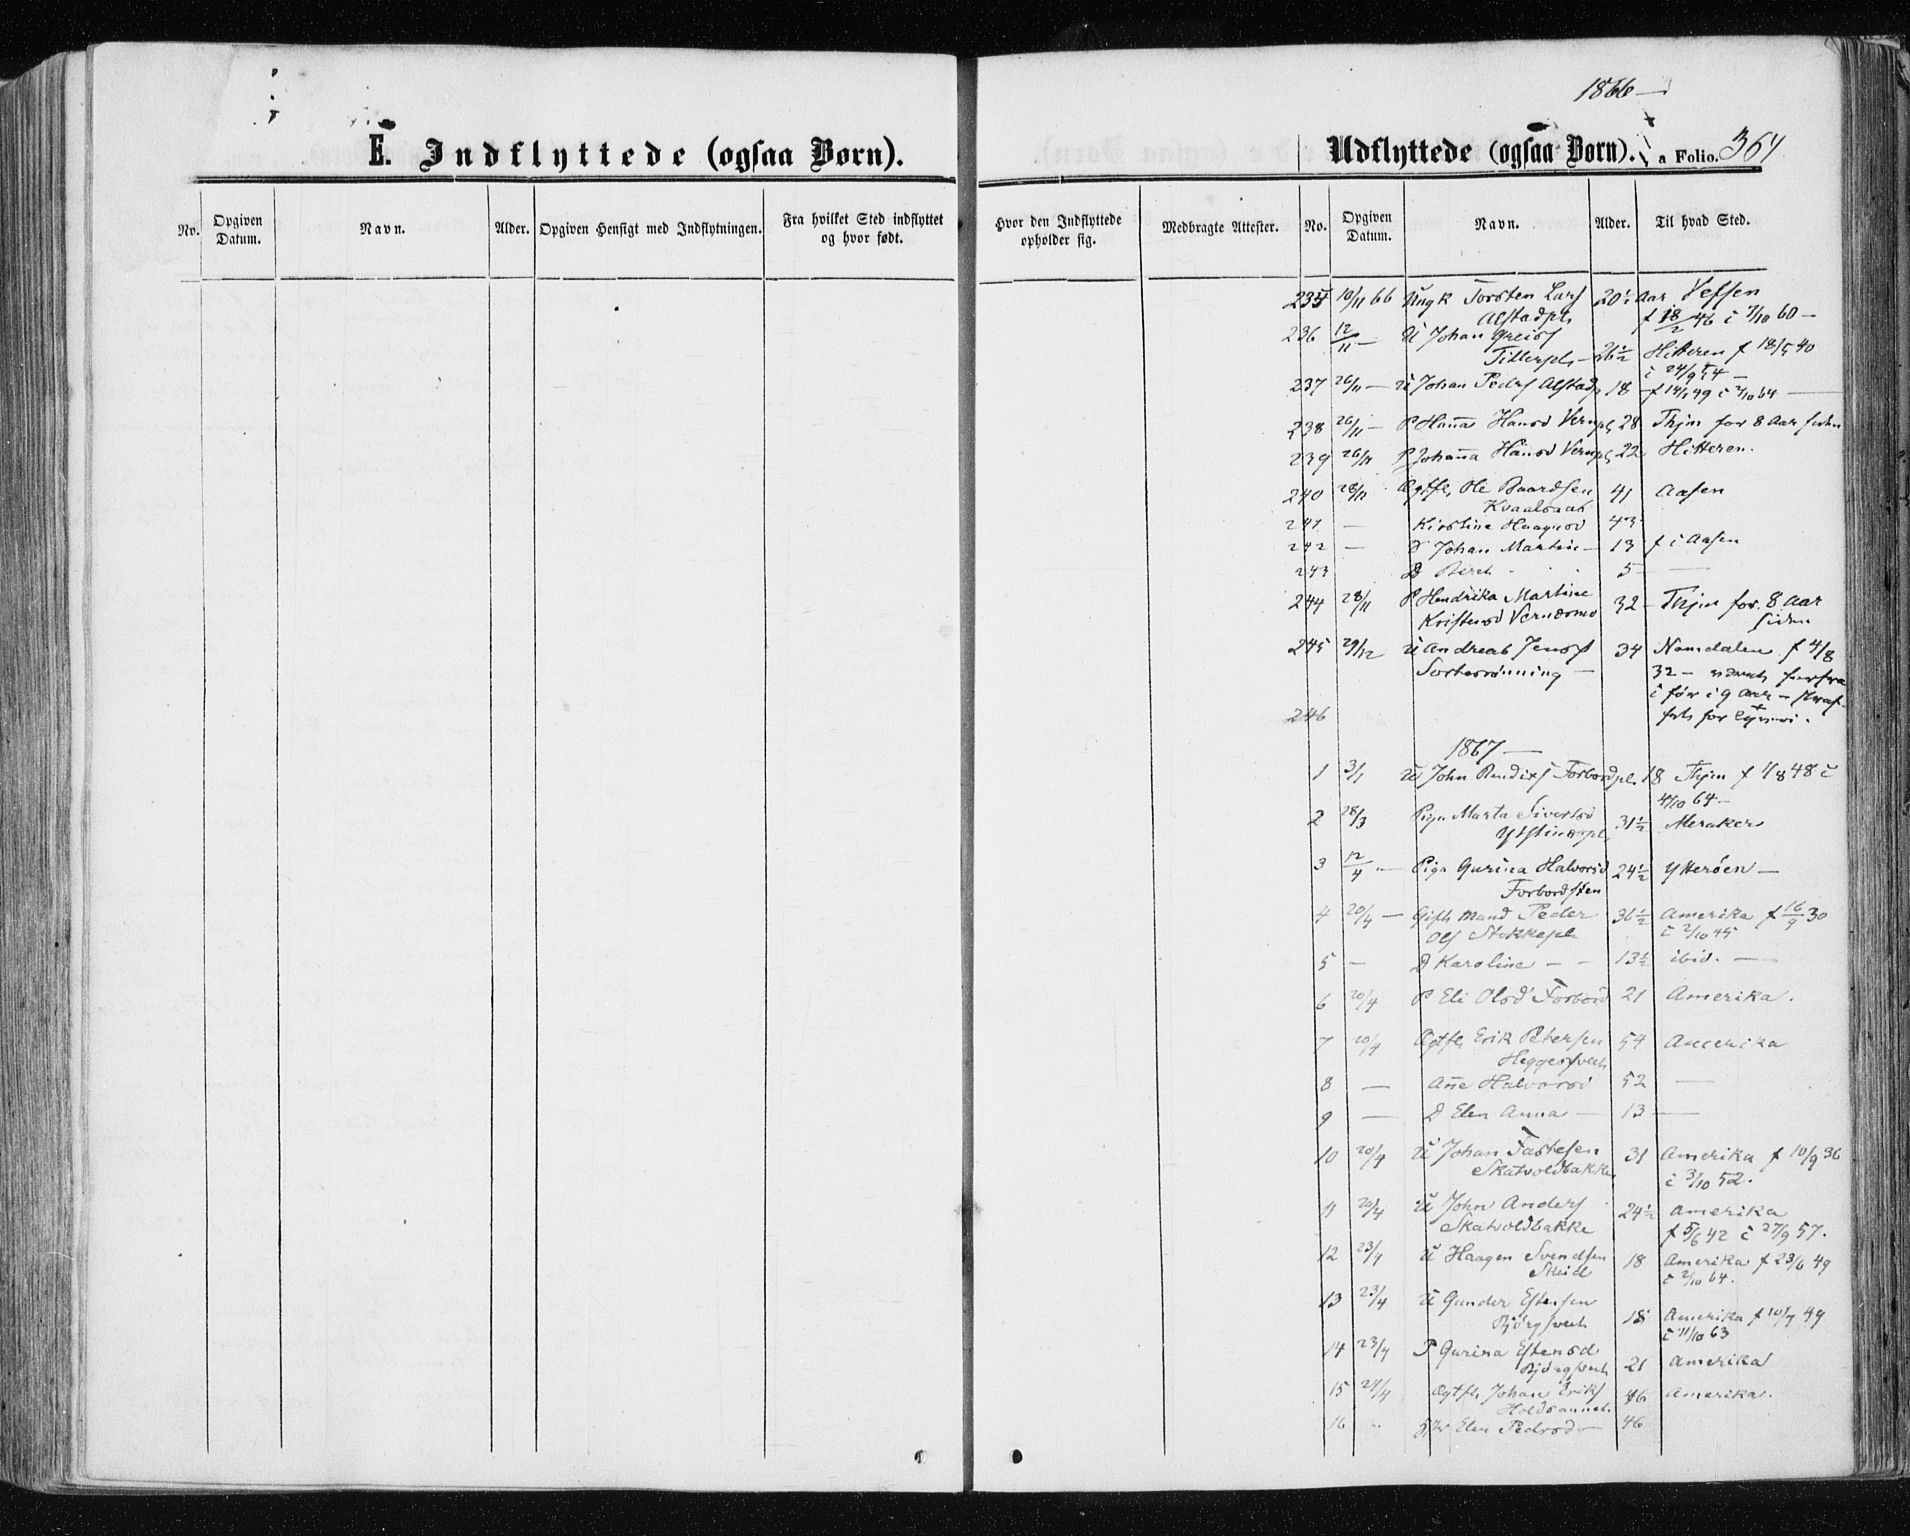 1866
E. Indflyttede (ogsaa Børn).
Udflyttede (ogsaa Børn).
a Folio. 364
No.
Opgiven Datum.
Navn.
Alder.
Opgiven Hensigt med Indflytningen.
Fra hvilket Sted indflyttet og hvor født.
Hvor den Indflyttede opholder sig.
Medbragte Attester.
No.
Opgiven Datum.
Navn.
Alder.
Til hvad Sted.
235 10/11 66 Ungk Torsten Lars 20½ Aar Vefsen
Alstadpl f 18/2 46 c 7/10 60 —
236 12/11 — U Johan
Tillerpl — 26½ Hitteren f 18/5 40
c 24/9 54 —
237 26/11 — U Johan Peders Alstadp 18 — f 14/1 49 c 2/10 64 —
238 26/11 — P Hanna Hansd Vernpl 28 Thjm for 8 Aar siden
239 26/11 P Johanna Hansd Vernpl 22 Hitteren.
240 28/11 Ægtfl, Ole Baardsen 41 Aasen
Kvaalsaas
241 — Kirstine Haagensd 43
242 — S Johan Martin — 13 f i Aasen
243 D Beret 5 —
244 28/11 P Hendrika Martine 32 — Thjm for 8 Aar
Kristensd Vernæsmo siden
245 29/12 U Andreas Jens 34 Namdalen f 4/8
Sorterønning — 32 —
i før i 9 Aar —
246 for
1867 —
1 3/1 U John Bendixs Forbordpl. 18 Thjm f 1/8 48 c
4/10 64 —
2 28/3 Pige Marta Sivertsd 31½ Meraker
3 12/4 — Pige Gurina Halvorsd 24½ Ytterøen —
Forbordsten
4 20/4 — Gift Mand Peder 36½ Amerika f 16/9 30
Ols Stokkepl c 2/10 45
5 — D Karoline — — 13½ ibid. —
6 20/4 P Eli Olsd Forbord 21 Amerika.
7 20/4 Ægtfl Erik Petersen 54 Amerika
8 — Anne Halvorsd 52 —
9 — D Elen Anna — 13 —
10 20/4 U Johan Fastesen 31 Amerika f 10/9 36
Skatvoldbakke c 3/10 52.
11 20/4 U John Anders 24½ Amerika
Skatvoldbakke f 5/6 42 c 27/9 57.
12 23/4 U Haagen Svendsen 18 Amerika f 23/6 49
c 2/10 64.
13 23/4 U Gunder Estensen
18 Amerika f 10/7 49
c 11/10 63
14 23/4 P Gurina Estensd
21 Amerika
15 24/4 Ægtfl Johan Eriks 46 Amerika.
16 — Elen Pedersd — 46